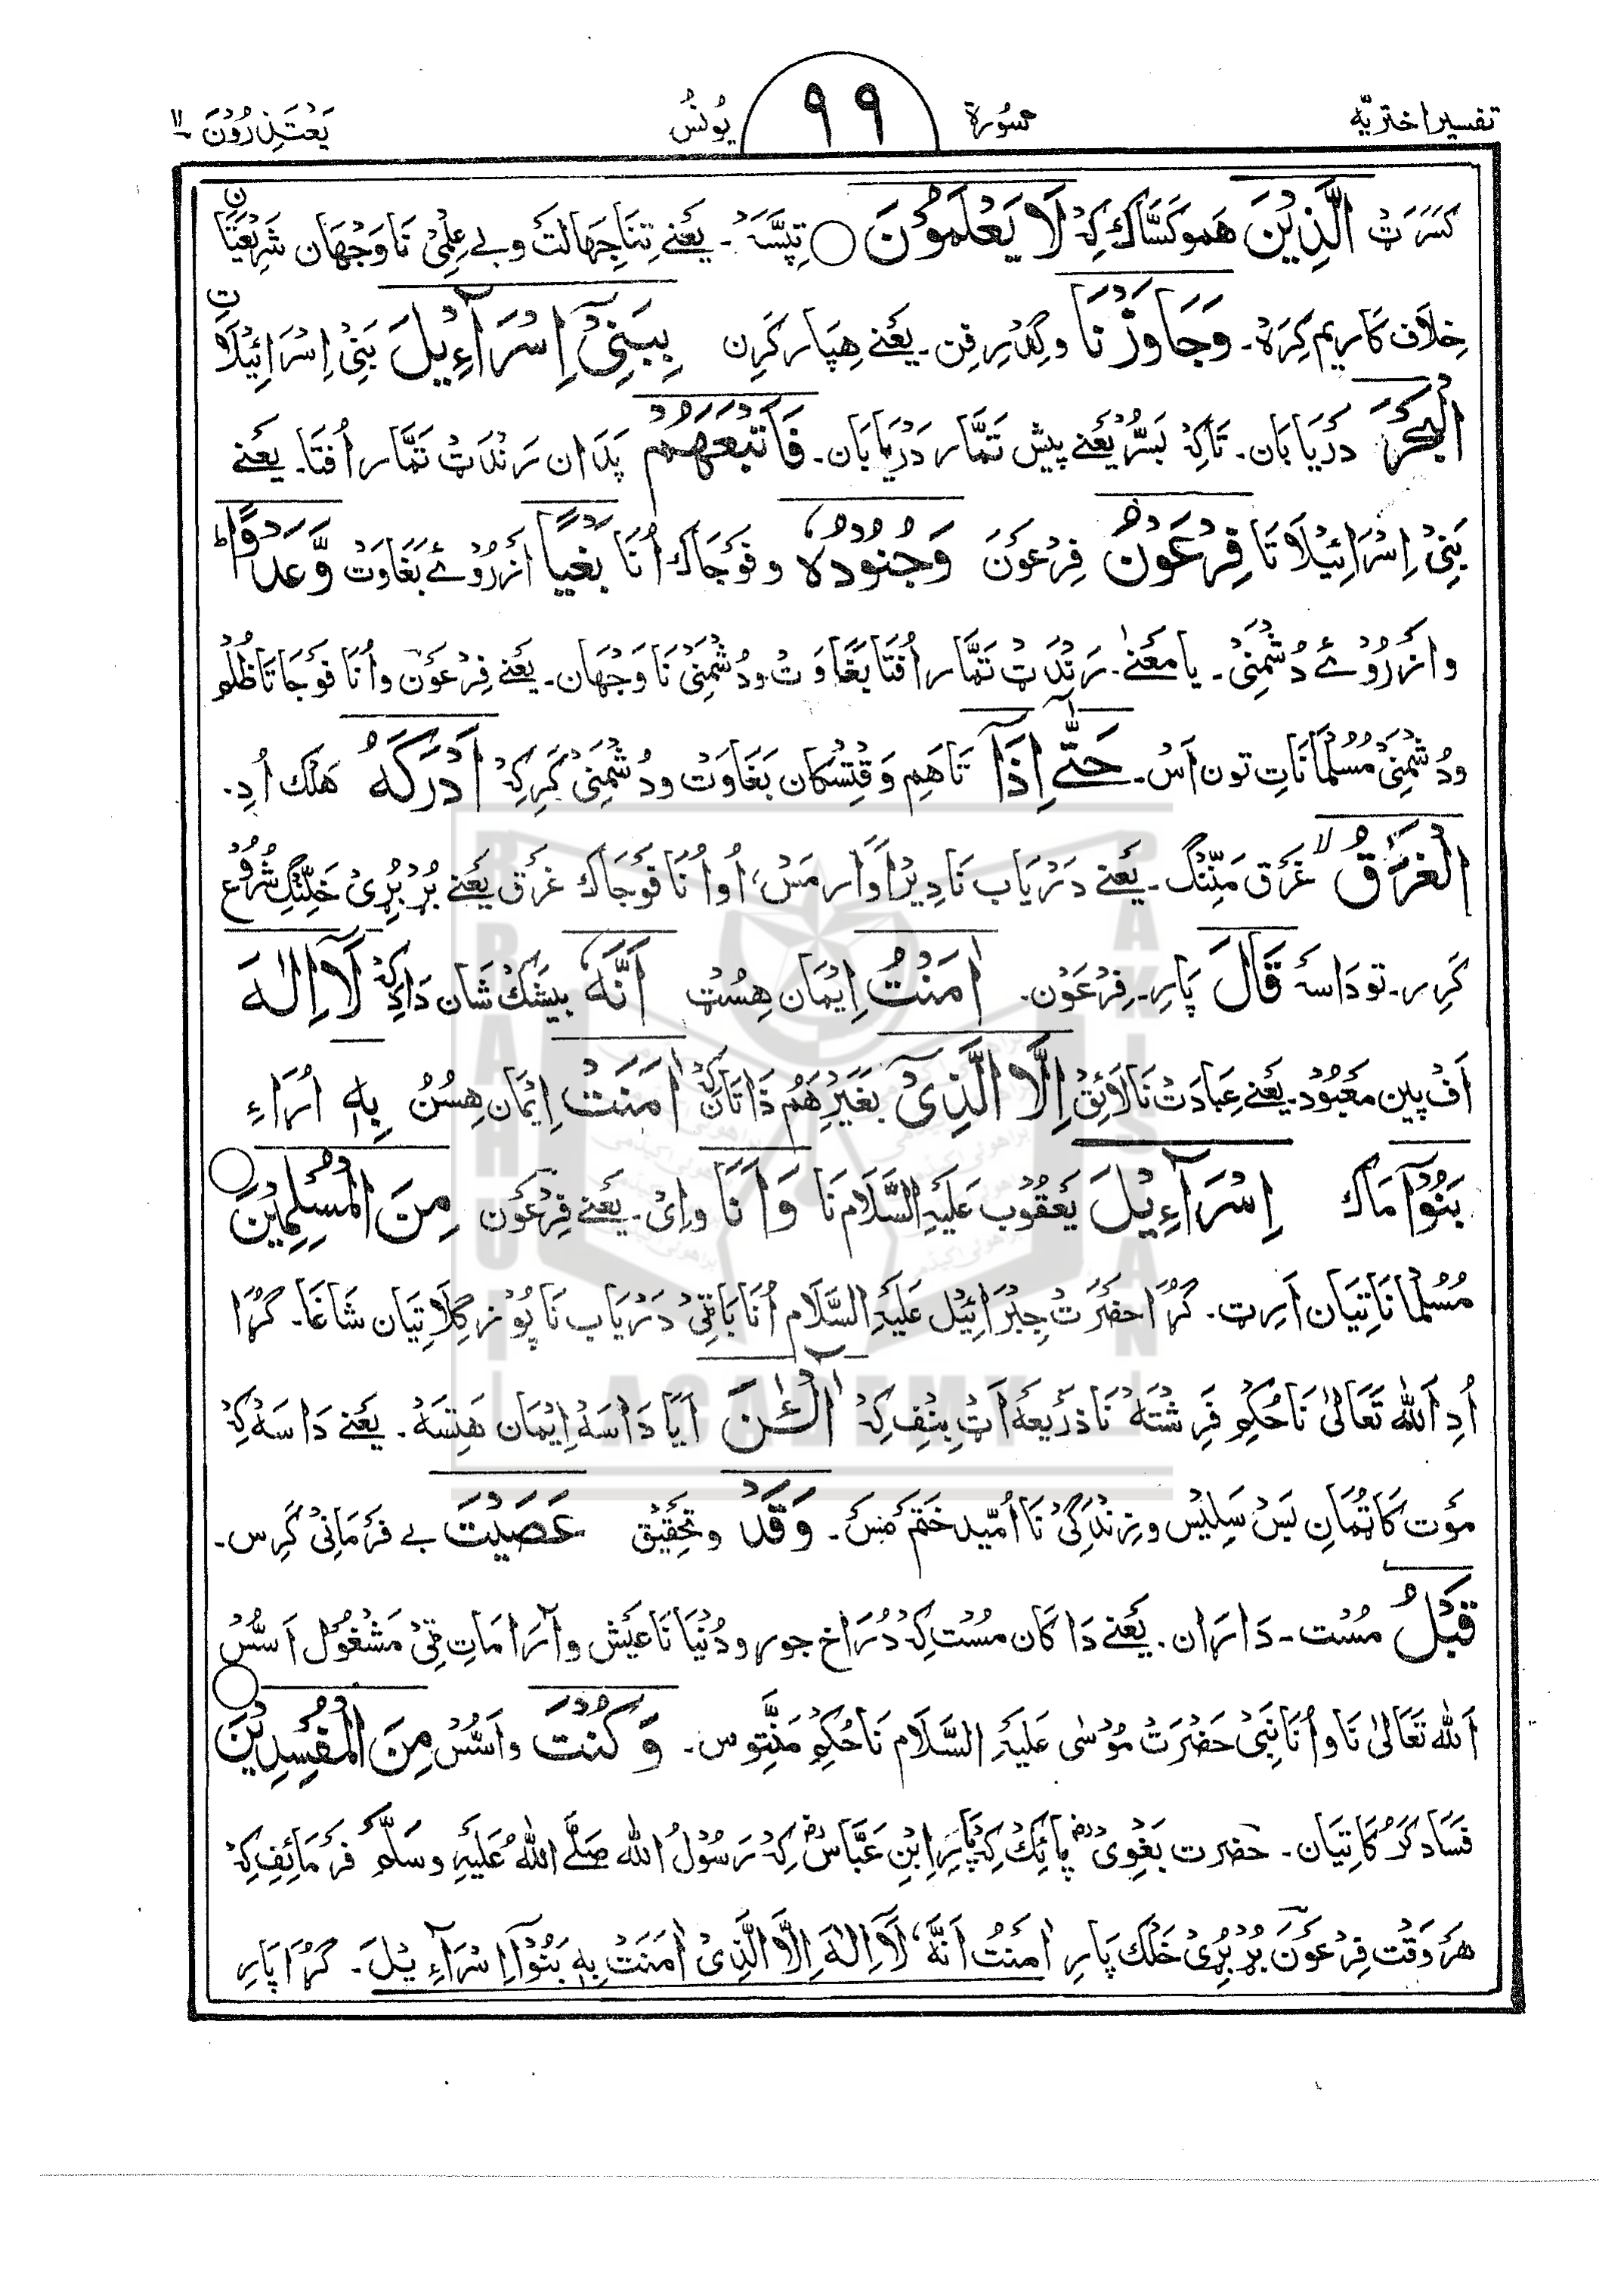 تفسیر اختریّه سُورة ٩٩ یُونسُ یَعْتَذِرُوْنَ ۱۱
کَسَرَتْ الَّذِیْنَ هَمو کَسَّاك کِهْ لَا یَعْلَمُوْنَ ○ تِپَسَّهْ ۔ یَعْنے تِنَا جِهَالتْ و بے عِلْمِیْ نَا وَجْهَان شَرِیْعَتَنَا
خِلَاف کَاریم کِرَهْ ۔ وَجَاوَزْنَا و گِدْرِفِن ۔ یَعْنے هِپَار کَرِن بِبَنِیْۤ اِسْرَآءِیْلَ بَنِیْ اِسْرَائِیْلَا تِ
الْبَحْرَ دَرْیَابَان ۔ تَاکِهْ بَسُّرْ یَعْنے پِیْش تَمَّار دَرْیَابَان ۔ فَاَتْبَعَهُمْ پَدَان رَنْدَتْ تَمَّار اُفْتَا ۔ یَعْنے
بَنِیْ اِسْرَائِیْلَا تَا فِرْعَوْنُ فِرْعَوْنَ وَجُنُوْدُهٗ و فَوْجَاك اُنَا بَغْیًا اَزْرُوْئے بَغَاوَتْ وَّعَدْوًا ؕ
وَاَزْرُوْئے دُشْمَنِیْ ۔ یا مَعْنٰے ۔ رَنْدَتْ تَمَّار اُفْتَا بَغَاوَتْ و دُشْمَنِیْ نَا وَجْهَان ۔ یَعْنے فِرْعَوْن وَاُنَا فَوْجَاتَا ظُلْم
و دُشْمَنِیْ مُسْلمَانَاتِ تون اَسْ ۔ حَتّٰۤے اِذَاۤ تَاهَم وَقْتِسْکَان بَغَاوَتْ و دُشْمَنِیْ کَرِ کِهْ اَدْرَكَهُ هَلْك اُدِ ۔
الْغَرَقُ لا غَرْق مَنِّنْگ ۔ یَعْنے دَرْیَاب نَا دِیْر اَوَار مَسْ، اُو اُنَا فَوْجَاك غَرْق یَعْنے بُڑْ بُرِیْ خَلِّنْگ شُرُوْع
کَرِر ۔ تو دَاسَهْ قَالَ پَارِ ۔ فِرْعَوْن ۔ اٰمَنْتُ اِیْمَان هِسُتْ اَنَّهٗ بیشَكْ شَان دَادِ کِهْ لَاۤ اِلٰهَ
اَفْ پین مَعْبُوْد ۔ یَعْنے عِبَادَتْ نَا لَائِقْ اِلَّا الَّذِیْۤ بَغَیْرْ هَمْ ذَاتَان کِهْ اٰمَنَتْ اِیْمَان هِسُنُ بِهٖ اُرَاءِ
بَنُوْۤا مَاك اِسْرَآءِیْلَ یَعْقُوْب عَلَیْهِ السَّلَام نَا وَاَنَا وَاِیْ ۔ یَعْنے فِرْعَوْن مِنَ الْمُسْلِمِیْنَ ○
مُسْلمَانَاتِیَان اَرِت ۔ گُڑَا حَضْرَتْ جِبْرَائِیْل عَلَیْهِ السَّلَام اُنَا بَاقِیْ دَرْیَاب نَا پُوْز گِلَا تِیَان شَاغَا ۔ گُڑَا
اُدِ اَللّٰه تَعَالٰی نَا حُکْم فَرِشْتَهْ نَا ذَرِیْعَه اَتْ بِنْفِ کِهْ آٰلْـٰٔنَ اَیَا دَاسَهْ اِیْمَان هَتِسَهْ ۔ یَعْنے دَاسَهْ کِهْ
مَوْت کَا تُمَانِ بَسْ سَلِیْس و زِنْدَگِیْ نَا اُمّید خَتَم مَسْ ۔ وَقَدْ و تَحْقِیْق عَصَیْتَ بے فَرْمَانِیْ کَرِس ۔
قَبْلُ مُسْت ۔ دَارَان ۔ یَعْنے دَا کَان مُسْت کِهْ دُرَاخ جور و دُنْیَا نَا عَیْش وَآرَامَاتِ ٹِیْ مَشْغُوْل اَسُّسْ
اَللّٰه تَعَالٰی نَا و اُنَا نَبِیْ حَضْرَتْ مُوْسٰی عَلَیْهِ السَّلَام نَا حُکْم مَنِّتوس ۔ وَكُنْتَ و اَسُّسْ مِنَ الْمُفْسِدِیْنَ ○
فَسَاد کَرُ کَاتِیَان ۔ حَضْرت بَغْوِیْ رح پائِكْ کِهْ پَارِ اِبْنِ عَبَّاسْ رض کِهْ رَسُوْلُ اللّٰه صَلَّے اللّٰهُ عَلَیْهِ وسَلَّم فَرْمَائِفِ کِهْ
هَر وَقْت فِرْعَوْن بُڑْ بُرِیْ خَلْك پَارِ اٰمَنْتُ اَنَّهٗ لَاۤ اِلٰهَ اِلَّا الَّذِیْۤ اٰمَنَتْ بِهٖ بَنُوْۤا اِسْرَآءِیْلَ ۔ گُڑَا پَارِ
BRAHUI ACADEMY PAKISTAN